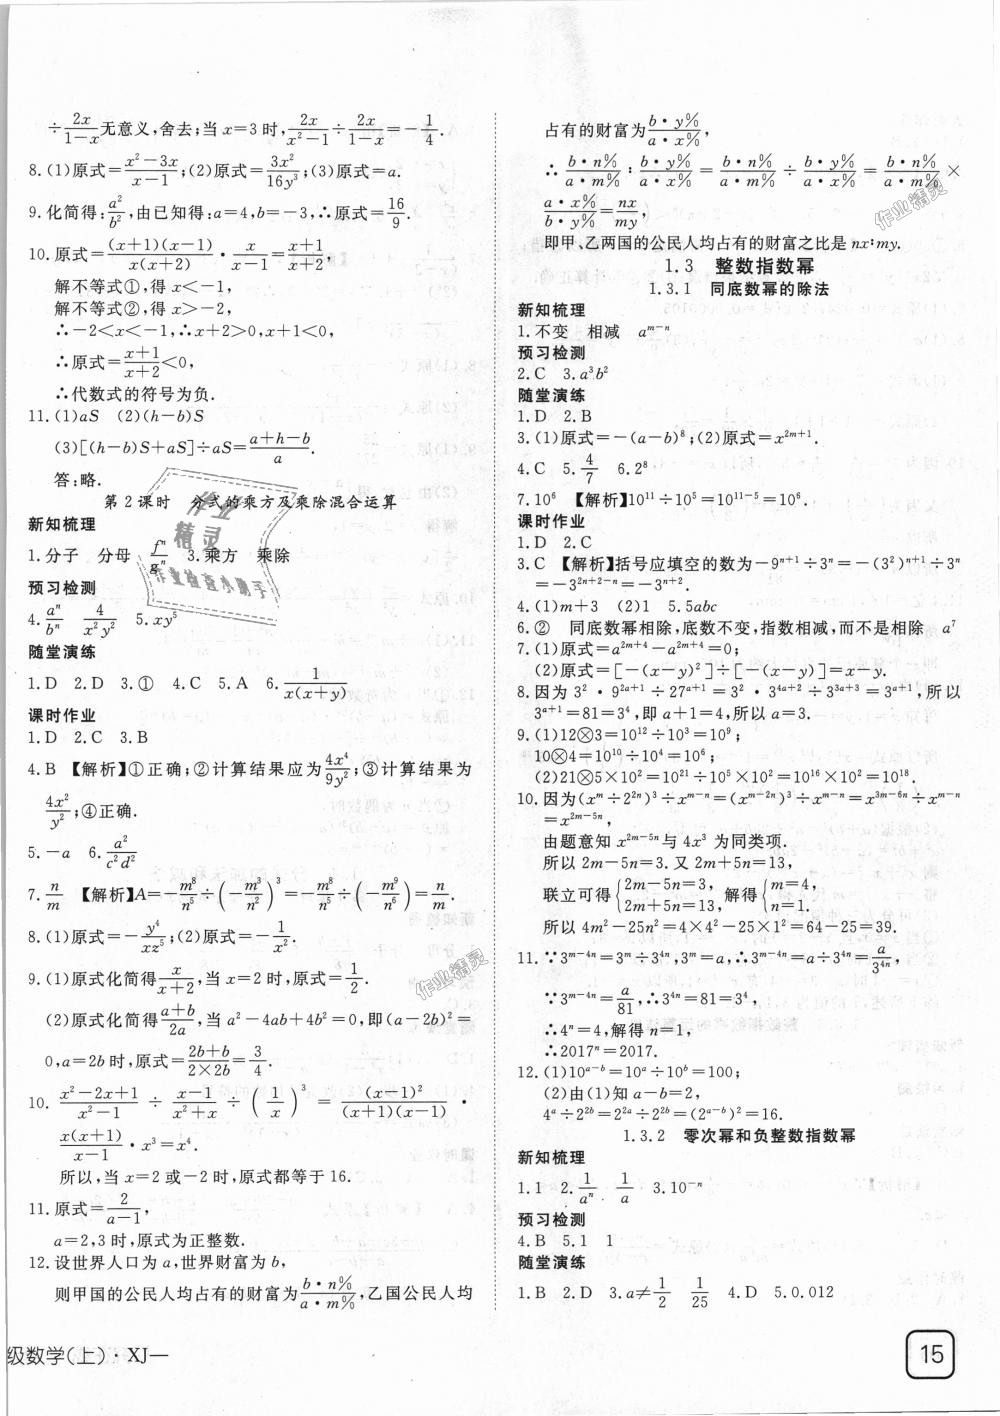 ÷2x/(1-x)无意义,舍去;当 x=3 时,2x/(x²-1)÷2x/(1-x)=-1/4.
8.(1)原式=(x²-3x)/(x-1);(2)原式=3x²/16y³;(3)原式=a.
9.化简得:a²/b²,由已知得:a=4,b=-3,∴原式=16/9.
10.原式=(x+1)(x-1)/x(x+2)·x/(x-1)=(x+1)/(x+2)
解不等式①,得 x<-1,
解不等式②,得 x>-2,
∴-2<x<-1,∴x+2>0,x+1<0,
∴原式=(x+1)/(x+2)<0,
∴代数式的符号为负.
11.(1)aS (2)(h-b)S
(3)[(h-b)S+aS]÷aS=(a+h-b)/a.
答:略.
第2课时 分式的乘方及乘除混合运算
新知梳理
1.分子 分母 fⁿ/gⁿ 3.乘方 乘除
预习检测
4.aⁿ/bⁿ 4/x²y² 5.xy⁵
随堂演练
1.D 2.D 3.① 4.C 5.A 6.1/x(x+y)
课时作业
1.D 2.C 3.B
4.B 【解析】①正确;②计算结果应为4x⁴/9y²;③计算结果为
4x²/y²;④正确.
5.-a 6.a²/c²d²
7.n/m 【解析】A=-m⁸/n⁵÷(-m³/n²)³=-m⁸/n⁵÷(-m⁹/n⁶)=n/m.
8.(1)原式=-y⁴/xz⁵;(2)原式=-1/x².
9.(1)原式化简得x/(x+2),当 x=2 时,原式=1/2.
(2)原式化简得(a+b)/2a,当 a²-4ab+4b²=0,即(a-2b)²=
0,a=2b 时,原式=(2b+b)/(2×2b)=3/4.
10.(x²-2x+1)/(x²-1)÷(x-1)/(x²+x)÷(1/x)³=(x-1)²/(x+1)(x-1)·
x(x+1)/(x-1)·x³=x⁴.
所以,当 x=2 或-2 时,原式都等于 16.
11.原式=2/(a-1),
a=2,3 时,原式为正整数.
12.设世界人口为 a,世界财富为 b,
则甲国的公民人均占有的财富为b·n%/a·m%,乙国公民人均
级数学(上)·XJ—
占有的财富为b·y%/a·x%,
∴b·n%/a·m%:b·y%/a·x%=b·n%/a·m%÷b·y%/a·x%=b·n%/a·m%×
a·x%/b·y%=nx/my.
即甲、乙两国的公民人均占有的财富之比是 nx:my.
1.3 整数指数幂
1.3.1 同底数幂的除法
新知梳理
1.不变 相减 aᵐ⁻ⁿ
预习检测
2.C 3.a³b²
随堂演练
1.D 2.B
3.(1)原式=-(a-b)⁸;(2)原式=x²ᵐ⁺¹.
4.C 5.4/7 6.2⁸
7.10⁶ 【解析】10¹¹÷10⁵=10¹¹⁻⁵=10⁶.
课时作业
1.D 2.C
3.C 【解析】括号应填空的数为-9ⁿ⁺¹÷3ⁿ=-(3²)ⁿ⁺¹÷3ⁿ
=-3²ⁿ⁺²⁻ⁿ=-3ⁿ⁺².
4.(1)m+3 (2)1 5.5abc
6.② 同底数幂相除,底数不变,指数相减,而不是相除 a⁷
7.(1)原式=a²ᵐ⁺⁴-a²ᵐ⁺⁴=0;
(2)原式=[-(x-y)²]÷[-(x-y)]=x-y.
8.因为 3²·9²ᵃ⁺¹÷27ᵃ⁺¹=3²·3⁴ᵃ⁺²÷3³ᵃ⁺³=3ᵃ⁺¹,所以
3ᵃ⁺¹=81=3⁴,即 a+1=4,所以 a=3.
9.(1)12⊗3=10¹²÷10³=10⁹;
10⊗4=10¹⁰÷10⁴=10⁶;
(2)21⊗5×10²=10²¹÷10⁵×10²=10¹⁶×10²=10¹⁸.
10.因为(xᵐ÷2²ⁿ)³÷xᵐ⁻ⁿ=(xᵐ⁻²ⁿ)³÷xᵐ⁻ⁿ=x³ᵐ⁻⁶ⁿ÷xᵐ⁻ⁿ
=x²ᵐ⁻⁵ⁿ,
由题意知 x²ᵐ⁻⁵ⁿ与 4x³ 为同类项.
所以 2m-5n=3.又 2m+5n=13,
联立可得{2m-5n=3, 2m+5n=13, 解得{m=4, n=1.
所以 4m²-25n²=4×4²-25×1²=64-25=39.
11.∵3ᵐ⁻⁴ⁿ=3ᵐ÷3⁴ⁿ,3ᵐ=a,∴3ᵐ⁻⁴ⁿ=a÷3⁴ⁿ=a/3⁴ⁿ,
∵3ᵐ⁻⁴ⁿ=a/81,∴3⁴ⁿ=81=3⁴,
∴4ⁿ=4,解得 n=1,
∴2017ⁿ=2017.
12.(1)10ᵃ⁻ᵇ=10ᵃ÷10ᵇ=100;
(2)由(1)知 a-b=2,
4ᵃ÷2²ᵇ=2²ᵃ÷2²ᵇ=(2ᵃ⁻ᵇ)²=16.
1.3.2 零次幂和负整数指数幂
新知梳理
1.1 2.1/aⁿ 1/a 3.10⁻ⁿ
预习检测
4.B 5.1 1
随堂演练
1.B 2.D 3.a≠1/2 1/25 4.D 5.0.012
15